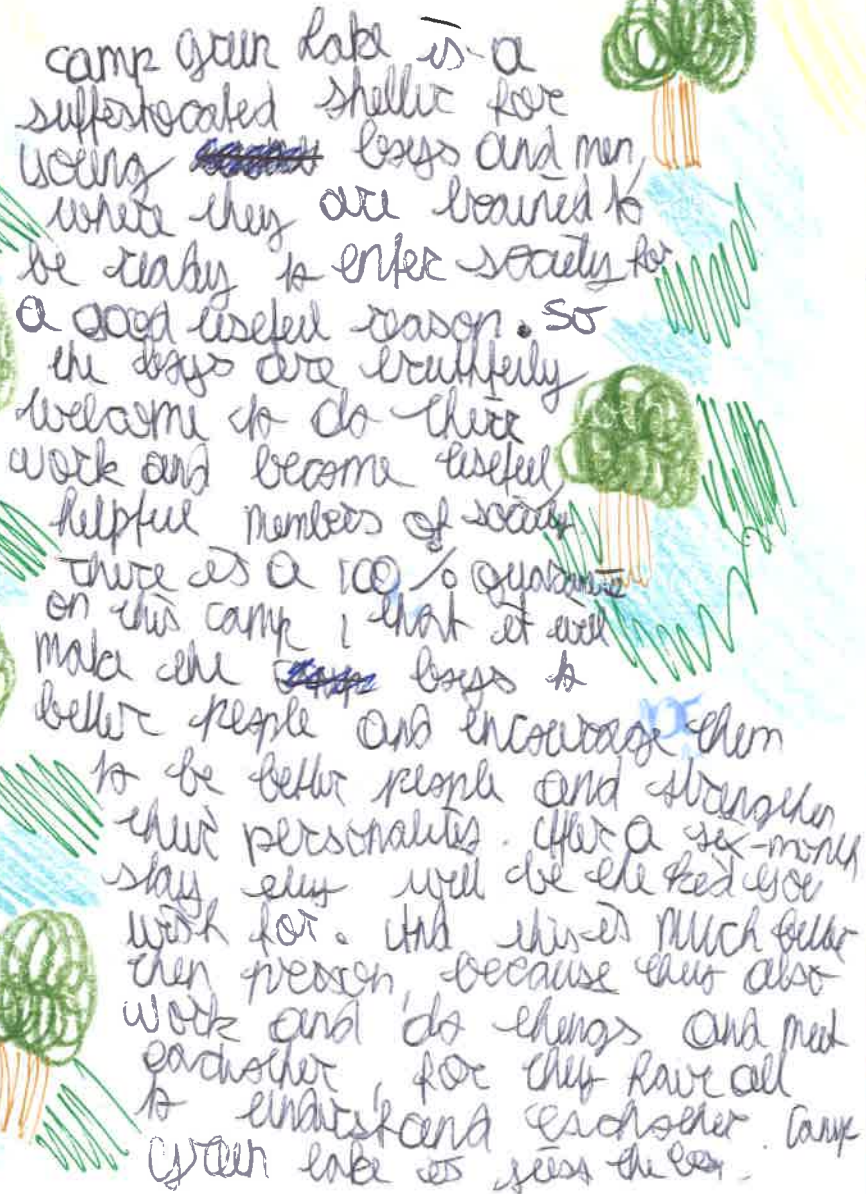 camp green Lake is a
suffostocated shelter for
young boys and men,
where they are trained to
be ready to enter society for
a good useful reason. so
the boys are truthfully
welcome to do there
work and become useful,
helpful members of society.
There is a 100% guarantee
on this camp, that it will
make the boys to
better people and encourage them
to be better people and strengthen
their personalities. After a six-month
stay they will be the kid you
wish for. And this is much better
then prison, because they also
work and do things and meet
eachother, for they have all
to understand eachother. Camp
green lake is just the best.